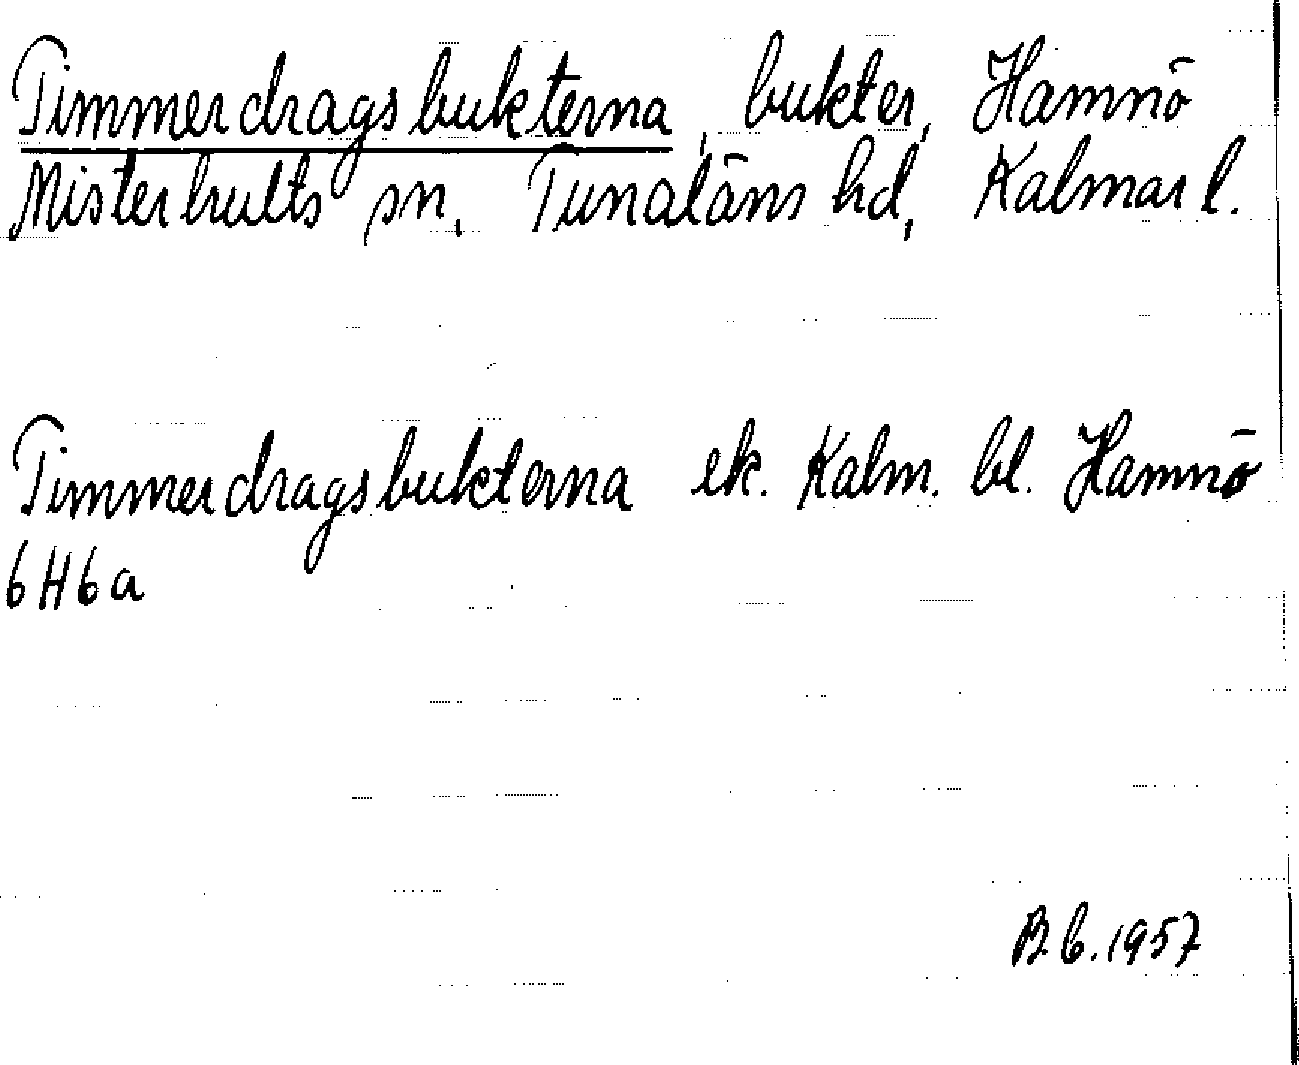 Timmerdragsbukterna, bukter, Hamnö
Misterhults sn, Tunaläns hd, Kalmar l.
Timmerdragsbukterna ek. Kalm. bl. Hamnö
6H6a
B.b. 1957